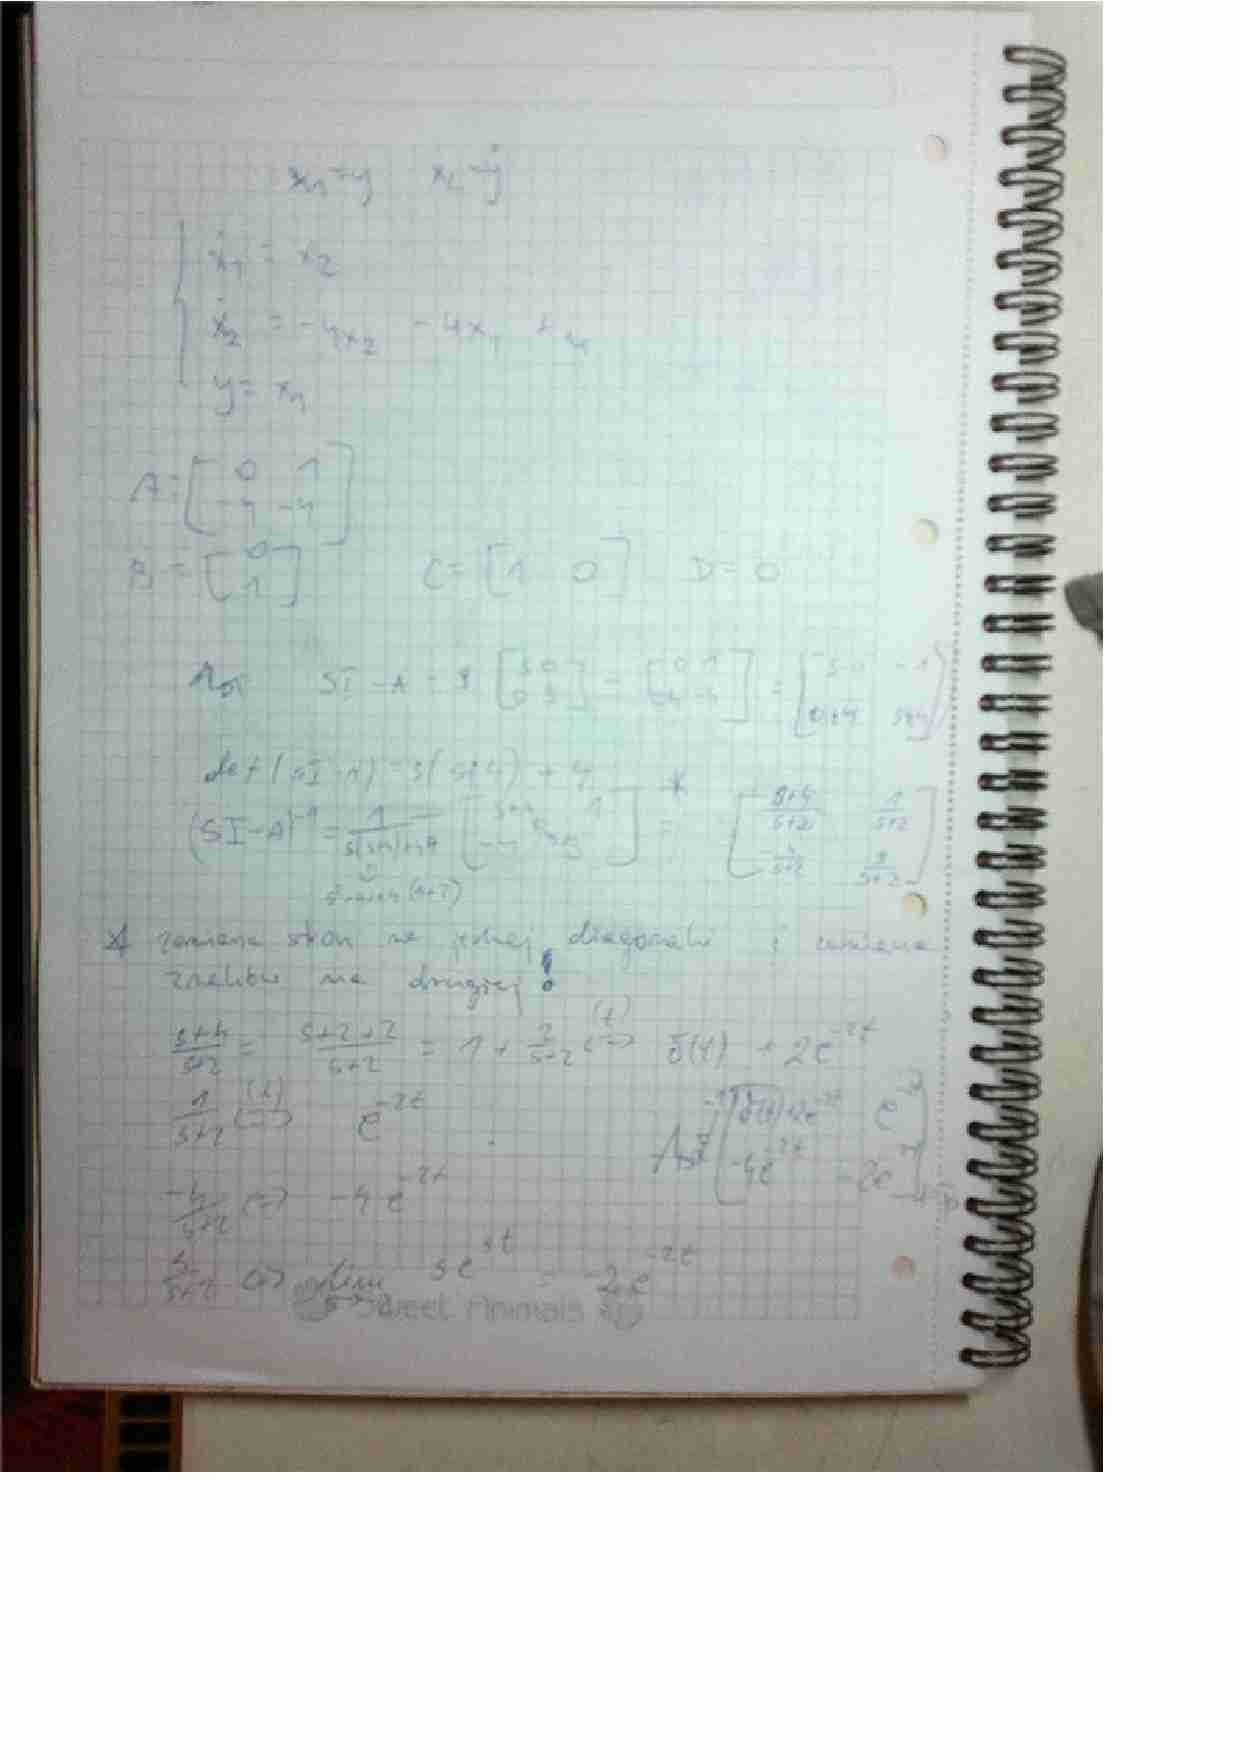 x₁=y x₂=ẏ
ẋ₁ = x₂
ẋ₂ = -4x₂ - 4x₁ + u
y = x₁
A = [0 1; -4 -4]
B = [0; 1] C = [1 0] D = 0
SI - A = [s 0; 0 s] - [0 1; -4 -4] = [s-0 -1; 0+4 s+4]
det(sI-A) = s(s+4) + 4
(SI-A)⁻¹ = 1/(s(s+4)+4) [s+4 1; -4 s] =* [(s+4)/(s+2) 1/(s+2); -4/(s+2) s/(s+2)]
* zamiana stron na jednej diagonali i zamiana
znaków na drugiej!
(s+4)/(s+2) = (s+2+2)/(s+2) = 1 + 2/(s+2) (t) <=> δ(t) + 2e^(-2t)
1/(s+2) (t) <=> e^(-2t)
[δ(t)+2e^(-2t) e^(-2t); -4e^(-2t) -2e^(-2t)]
-4/(s+2) <=> -4e^(-2t)
s/(s+2) <=> lim se^(st) = -2e^(-2t)
Sweet Animals